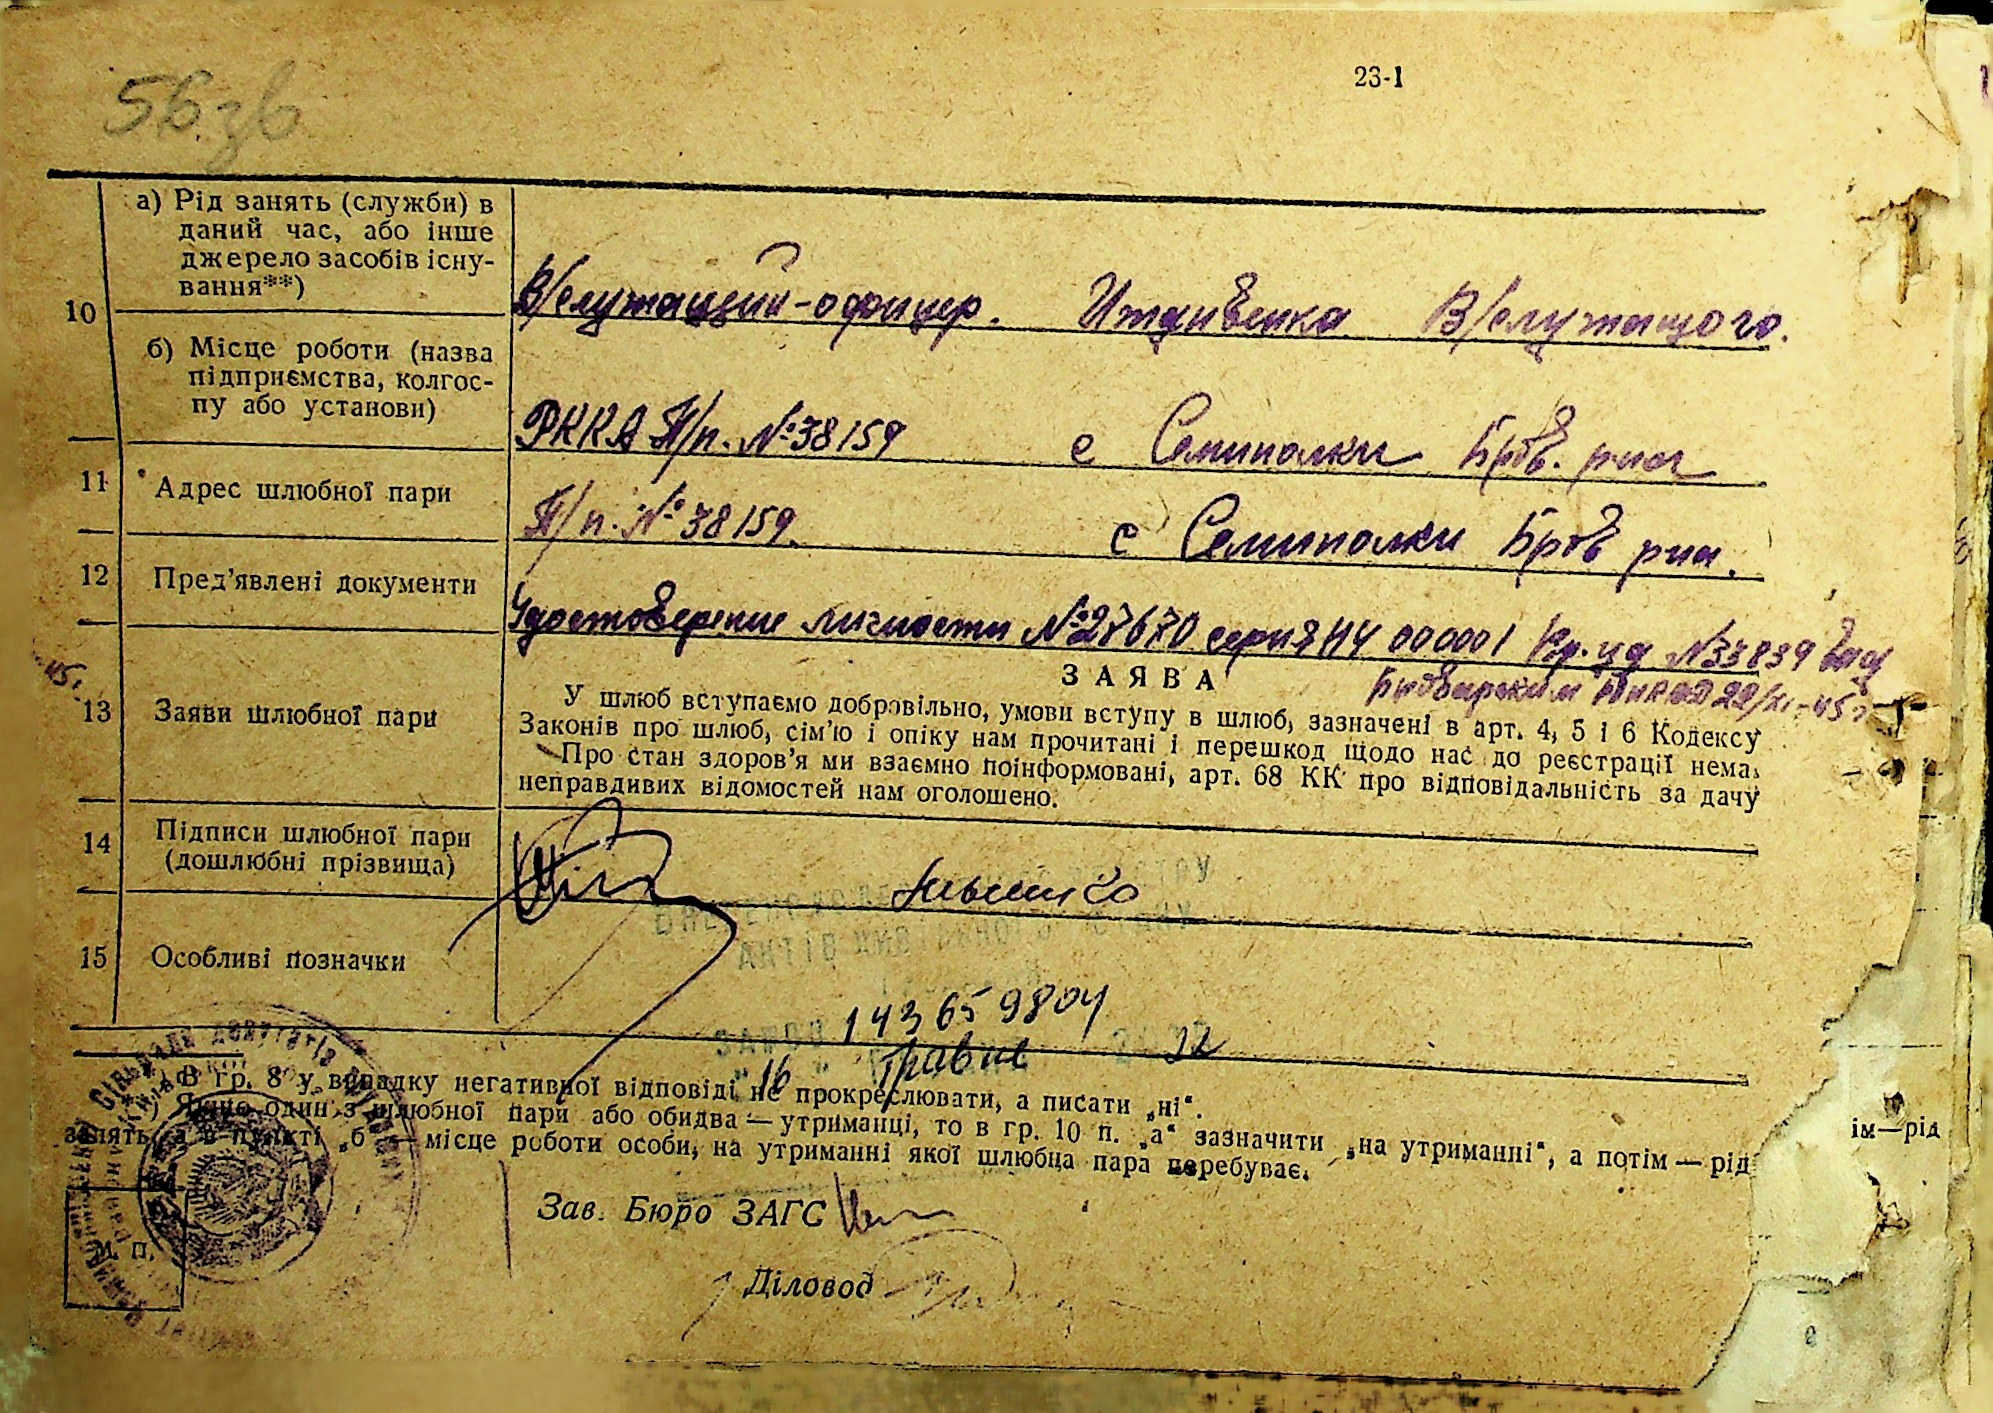 56 зв
23-1
10
а) Рід занять (служби) в
даний час, або інше
джерело засобів існу-
вання**)
В/служащий-офицер. Иждивенка В/служащого.
б) Місце роботи (назва
підприємства, колгос-
пу або установи)
РККА П/п. №38159 с Семиполки Бров. р-на
11 Адрес шлюбної пари
П/п. №38159. с Семиполки Бров р-на.
12 Пред'явлені документи
Удостоверение личности №27670 серия НЧ 000001 №33839
22/XI-45г
45г.
13 Заяви шлюбної пари
ЗАЯВА
У шлюб вступаємо добровільно, умови вступу в шлюб, зазначені в арт. 4, 5 і 6 Кодексу
Законів про шлюб, сім'ю і опіку нам прочитані і перешкод щодо нас до реєстрації нема.
Про стан здоров'я ми взаємно поінформовані, арт. 68 КК про відповідальність за дачу
неправдивих відомостей нам оголошено.
14 Підписи шлюбної пари
(дошлюбні прізвища)
15 Особливі позначки
АКТІВ
143659804
16 травня 22
В гр. 8 у випадку негативної відповіді не прокреслювати, а писати „ні“.
) Якщо один з шлюбної пари або обидва — утриманці, то в гр. 10 п. „а“ зазначити „на утриманні“, а потім — рід
занять, а в пункті „б“ — місце роботи особи, на утриманні якої шлюбна пара перебуває.
ім—рід
Зав. Бюро ЗАГС
М. П.
Діловод